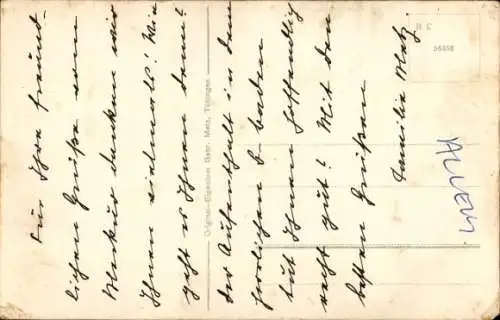 Für Ihre freund-
lichen Grüße von
Markus danken wir
Ihnen vielmals! Wie
geht es Ihnen denn?
der Aufenthalt in dem
herrlichen B-baden
tut Ihnen hoffentlich
recht gut! Mit den
besten Grüßen
Familie Metz.
Original-Eigentum Gebr. Metz, Tübingen